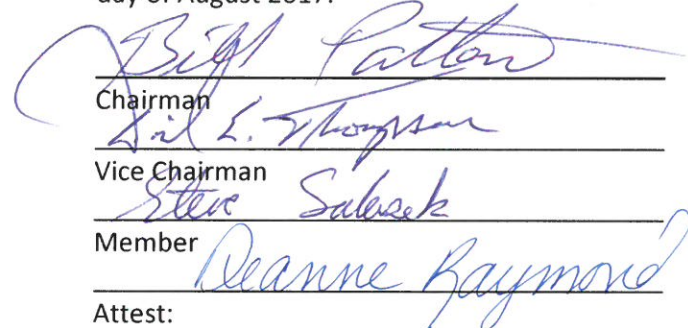 day of August 2017.
Bill Patton
Chairman
L. Thompson
Vice Chairman
Steve
Member
Deanne Raymond
Attest: